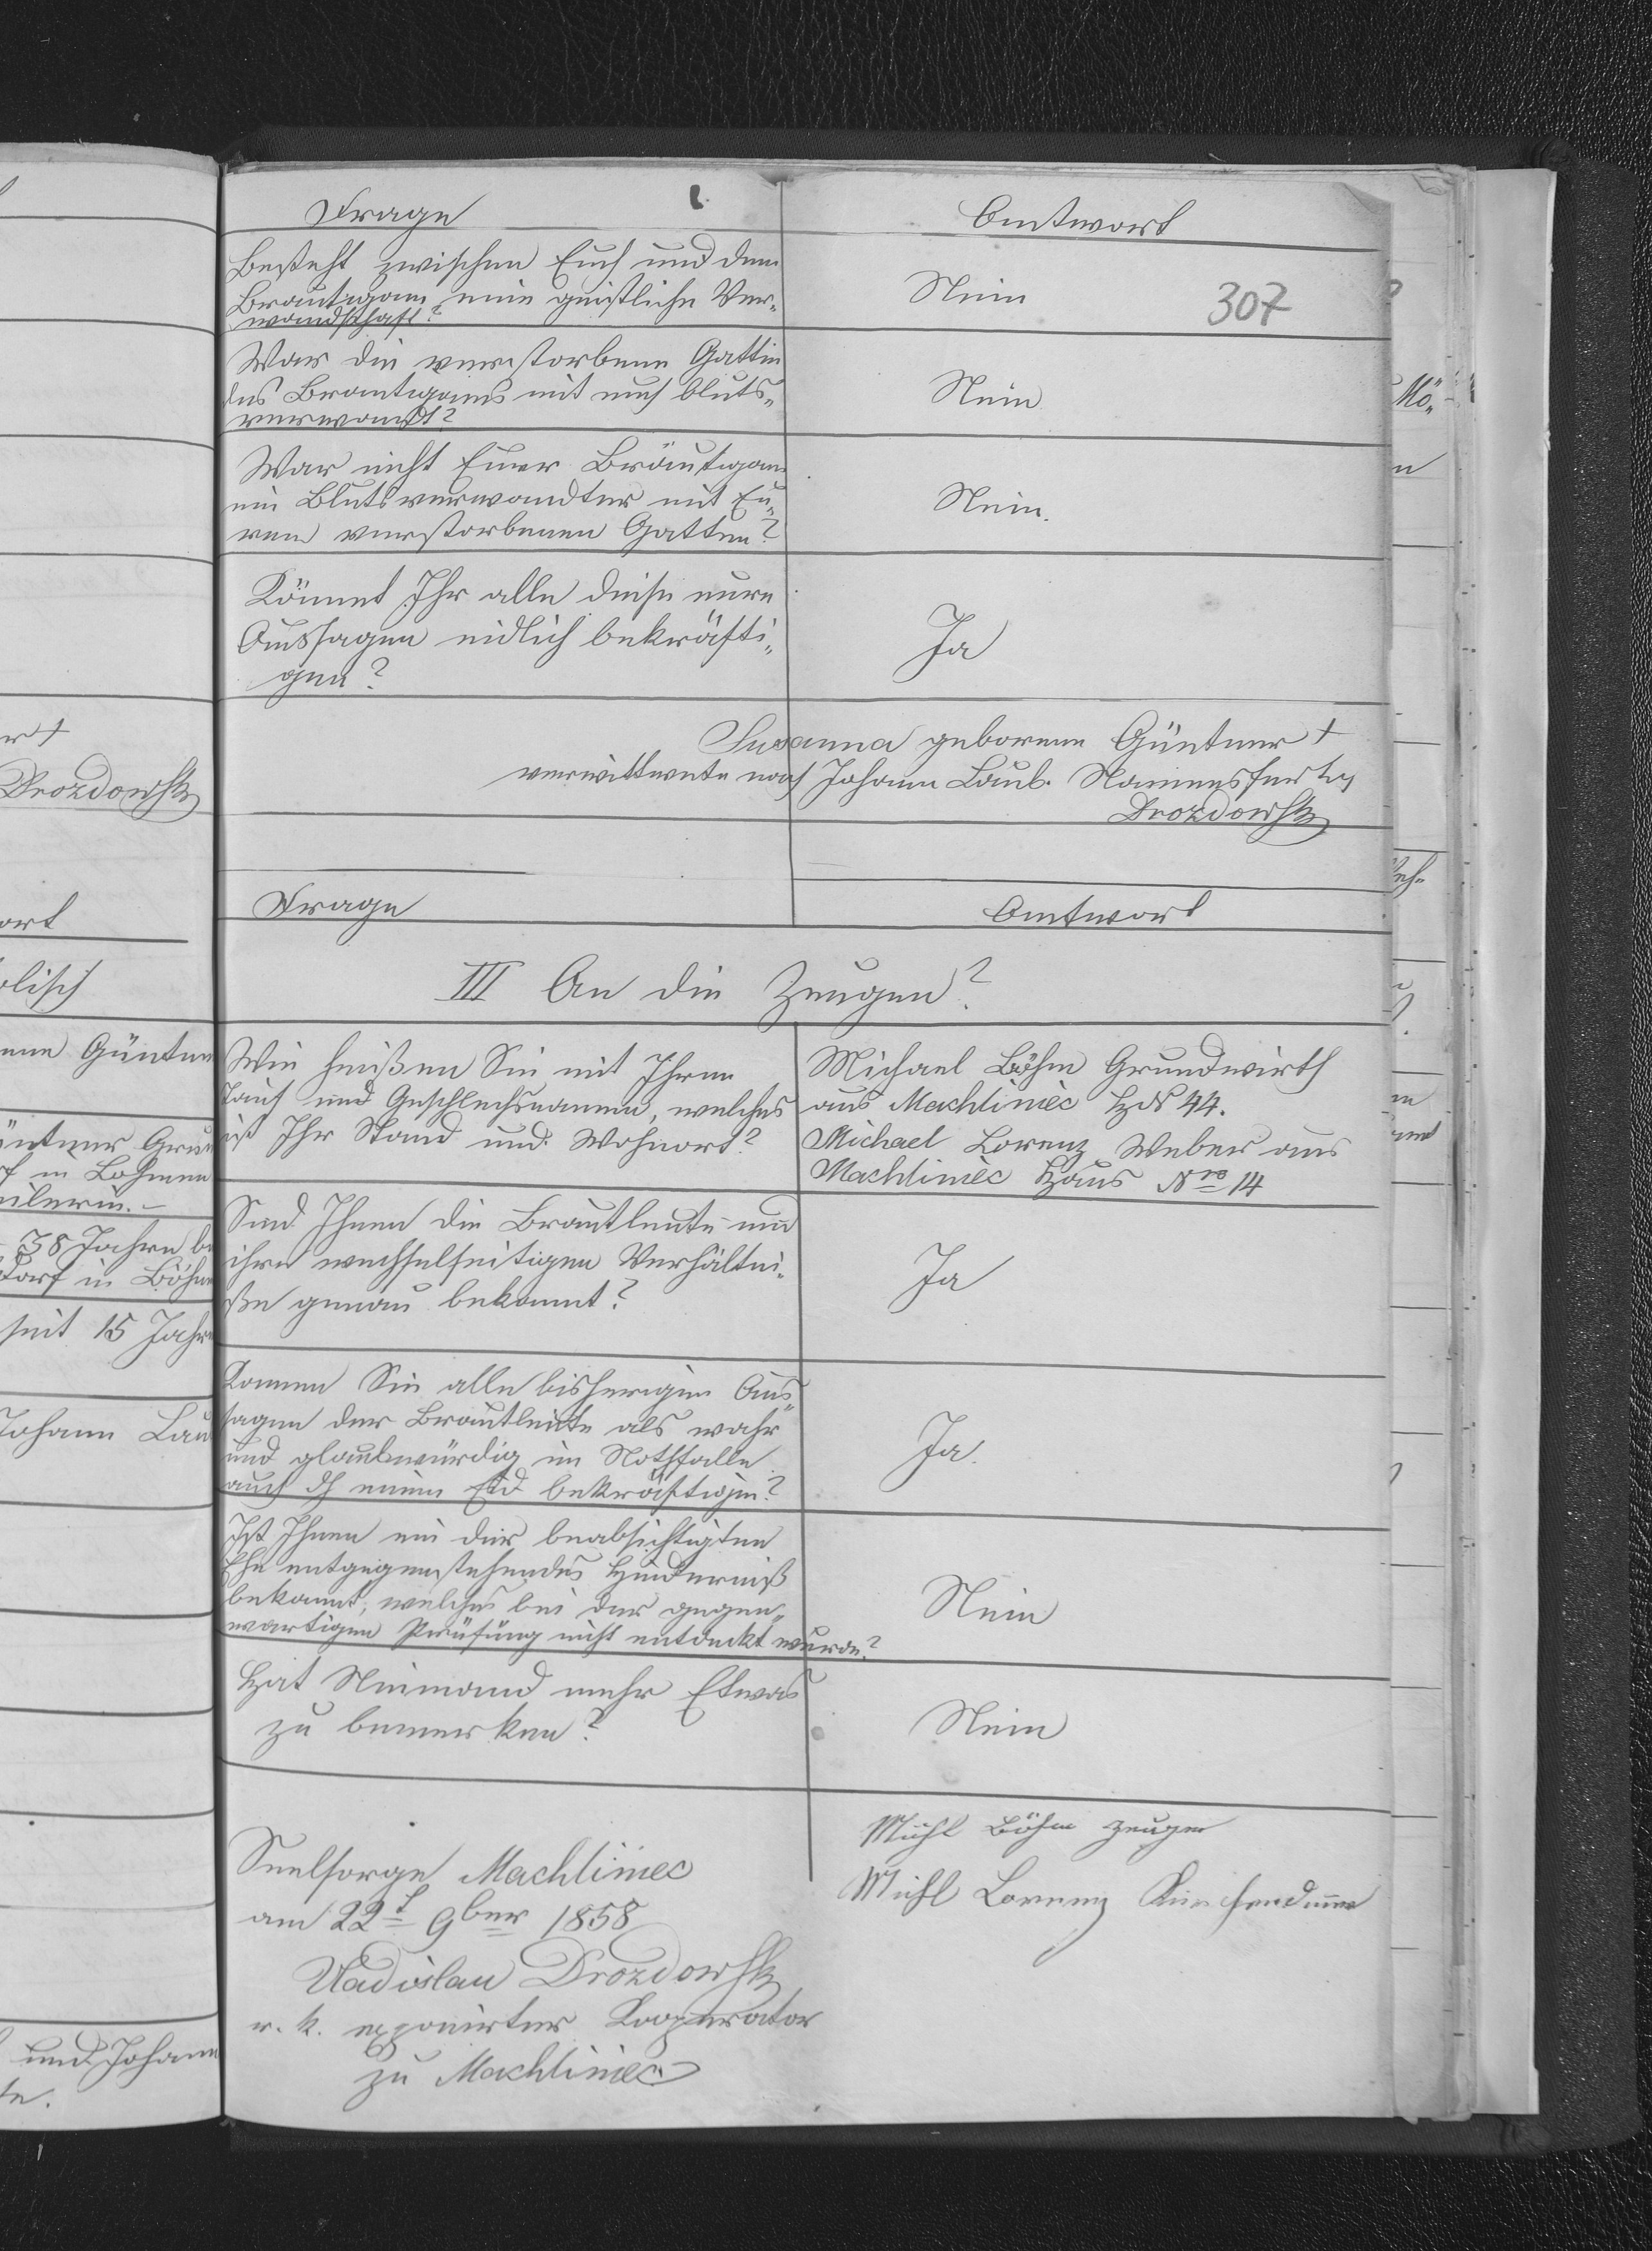 Frage
Antwort
Besteht zwischen Euch und dem
Brautigam eine geistliche Ver-
wandschaft?
Nein
307
War die verstorbene Gattin
des Brautigams mit euch bluts-
verwandt?
Nein
War nicht Euer Bräutigam
ein Blutsverwandter mit Eu-
rem verstorbenen Gatten?
Nein.
Könnet Ihr alle diese eure
Aussagen eidlich bekräfti-
gen?
Ja
Susanna geborene Güntner +
verwittwete nach Johann Laub. Namensfertig
Drozdowski
Frage
Antwort
III An die Zeugen?
Wie heißen Sie mit Ihrem
Tauf und Geschlechsnamen, welches
ist Ihr Stand und Wohnort?
Michael Böhm Grundwirth
aus Machliniec HsN 44.
Michael Lorenz Weber aus
Machliniec Haus Nro 14
Sind Ihnen die Brautleute und
ihre wechselseitigen Verhältni-
ße genau bekannt?
Ja
Konnen Sie alle bisherigen Aus-
sagen der Brautleute als wahr
und glaubwürdig im Nothfalle
auch dh einen Eid bekräftigen?
Ja.
Ist Ihnen ein der beabsichtigten
Ehe entgegenstehendes Hinderniß
bekannt, welches bei der gegen-
wartigen Prüfung nicht entdeckt wurde?
Nein
Hat Niemand mehr Etwas
zu bemerken?
Nein
Seelsorge Machliniec
am 22t 9ber 1858
Uladislau Drozdowski
r. k. exponirter Kooperator
zu Machliniec
Michl Böhm Zeuge
Michl Lorenz
Drozdowski
ort
olisch
ene Güntner
38 Jahre
dorf in Böhm
seit 15 Jahre
Johann Lau
und Johann
te.